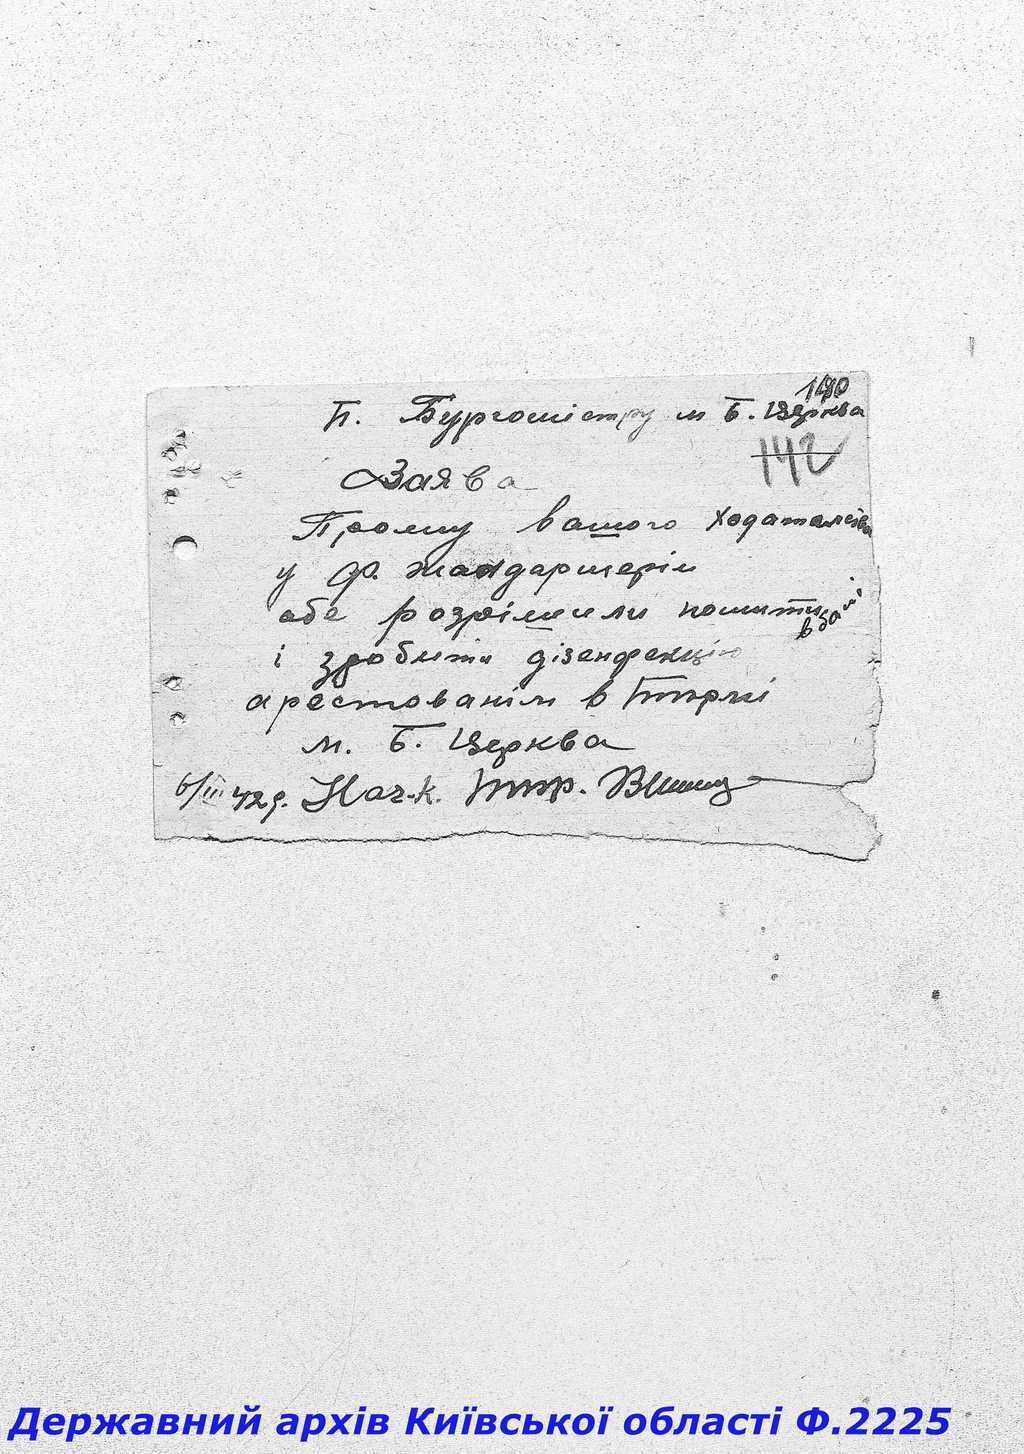 140
П. Бургомістру м Б. Церква
142
Заява
Прошу вашого ходатайства
у ф. жандармерії
абе розрішили помити
в бані
і здобити дізенфекцію
арестованім в тюрмі
м. Б. Церква
6/III 42 р. Нач-к. тюр.
Державний архів Київської області Ф.2225